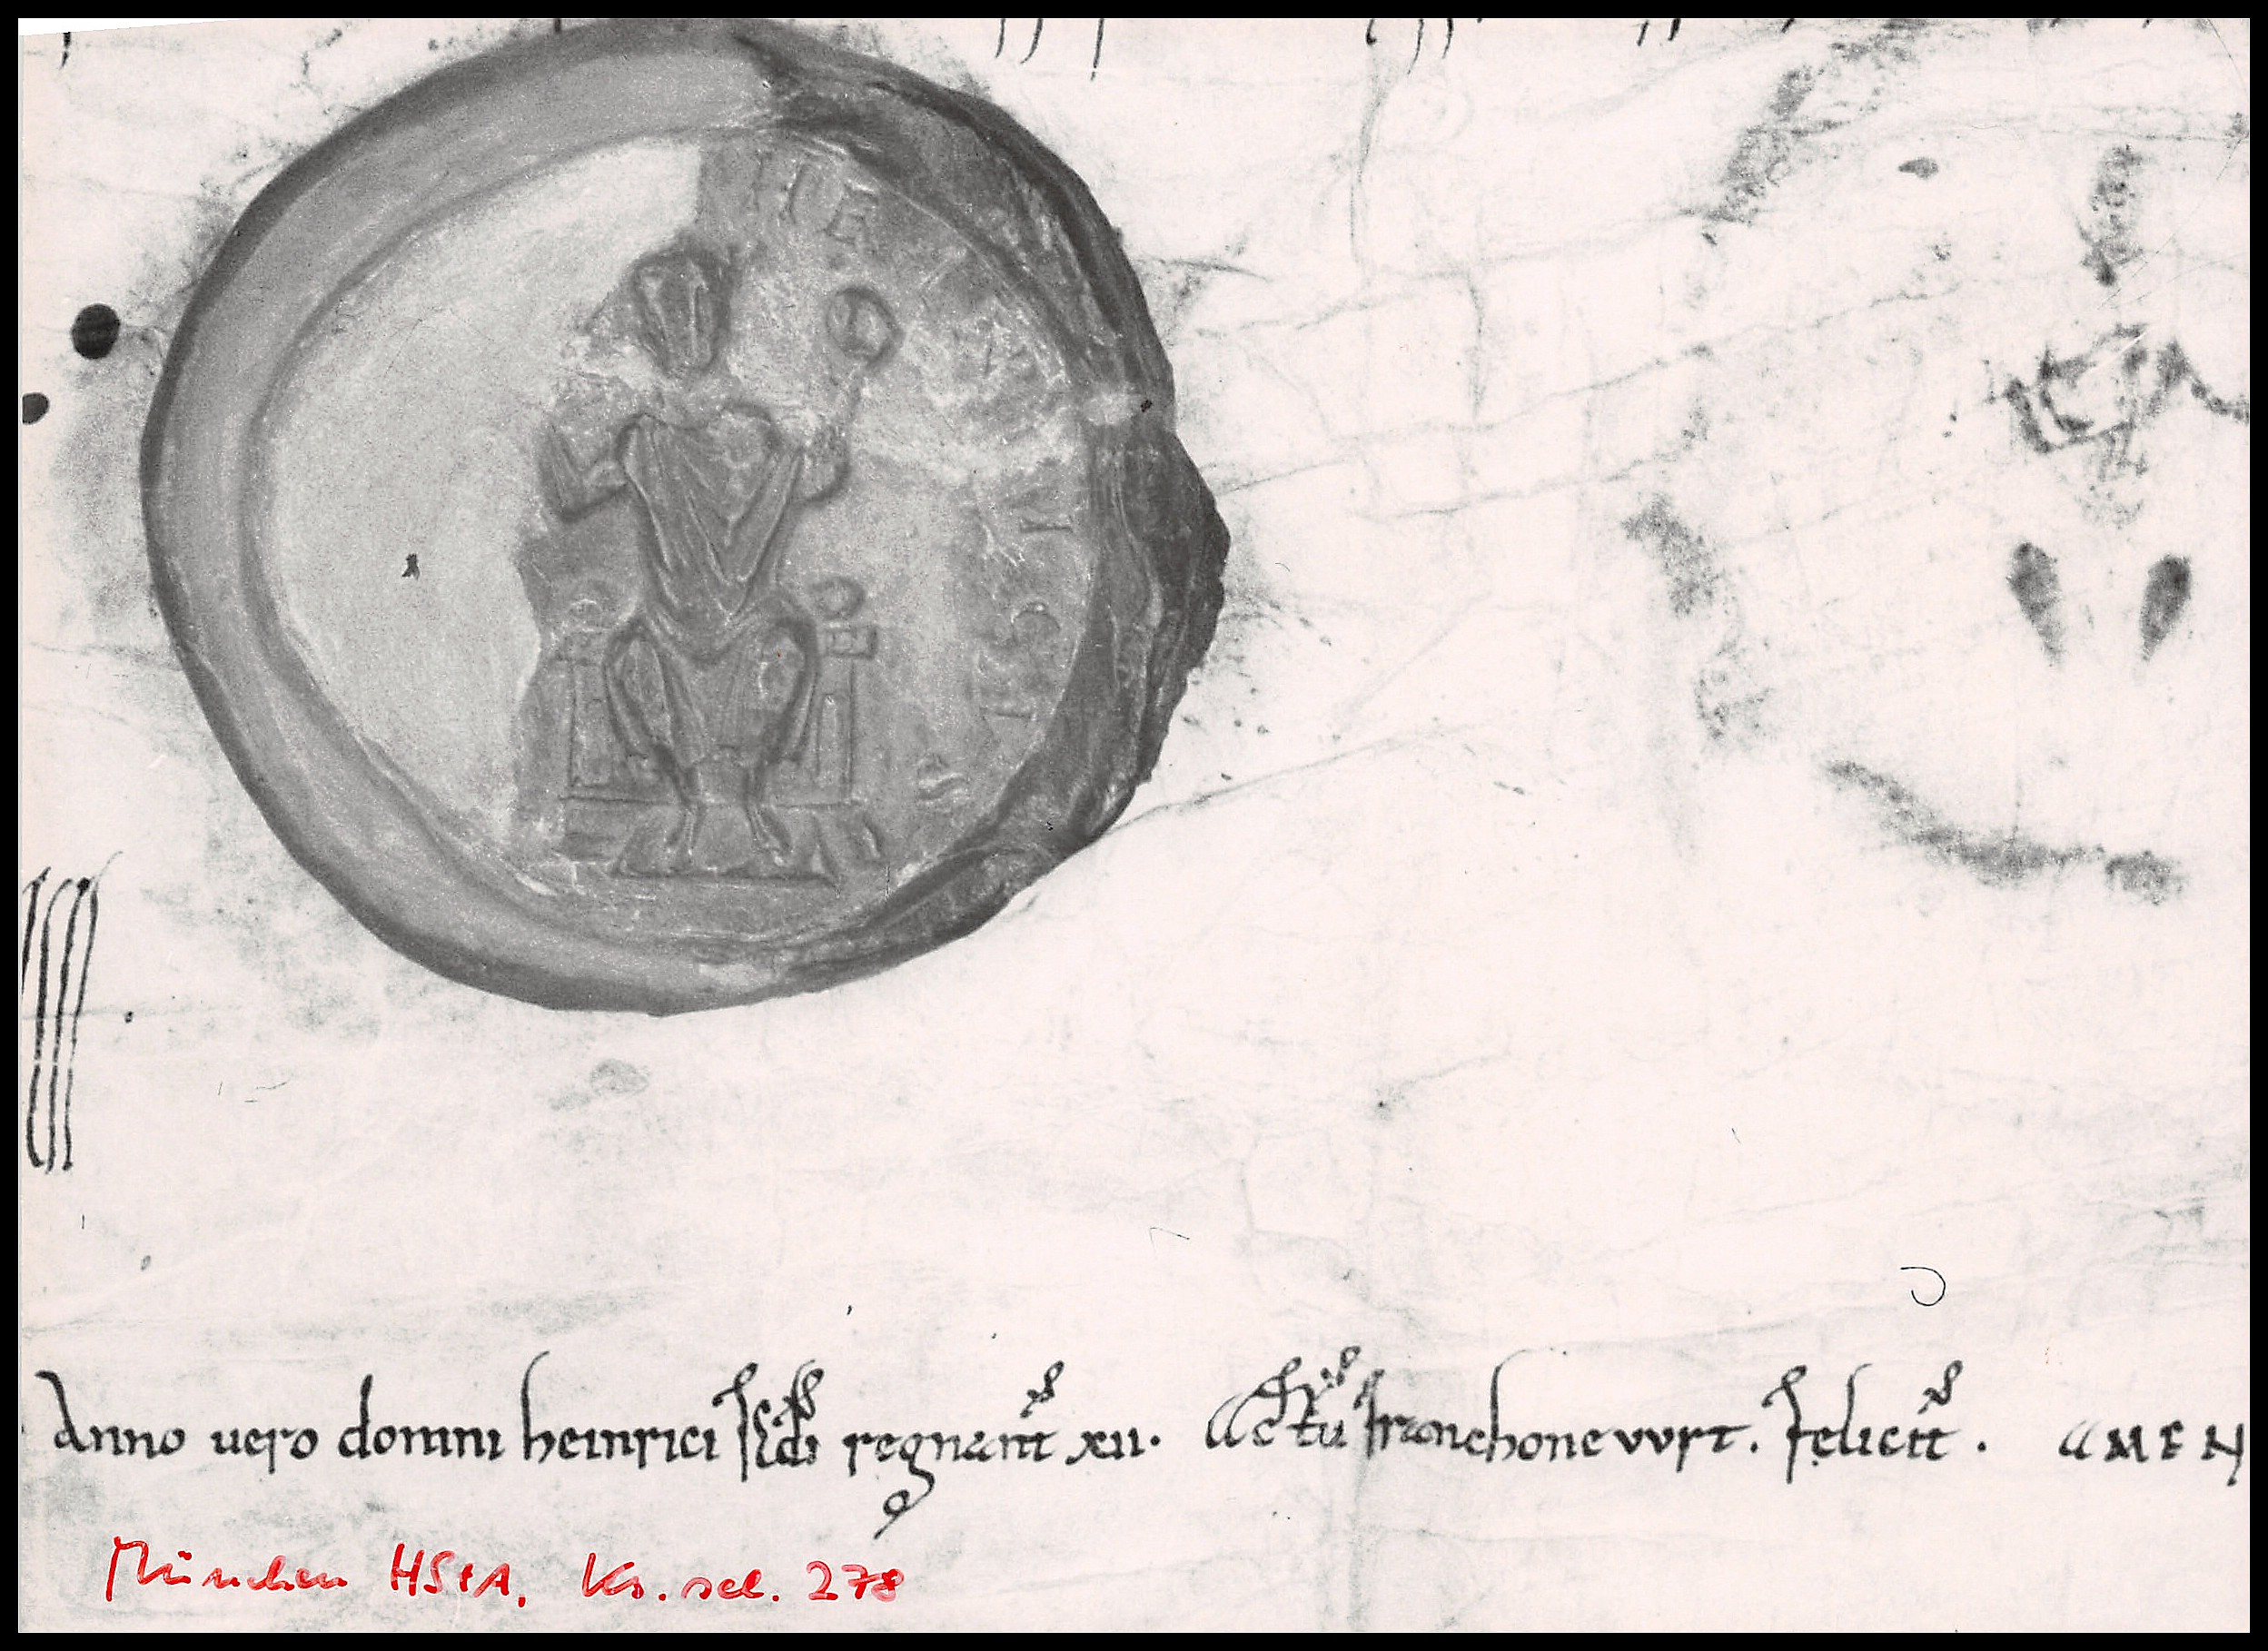 HE
Anno uero domni heinrici scdi regnant xii. Actu franchoneuurt. feliciť. AMEN
München HStA. Ks. sel. 278